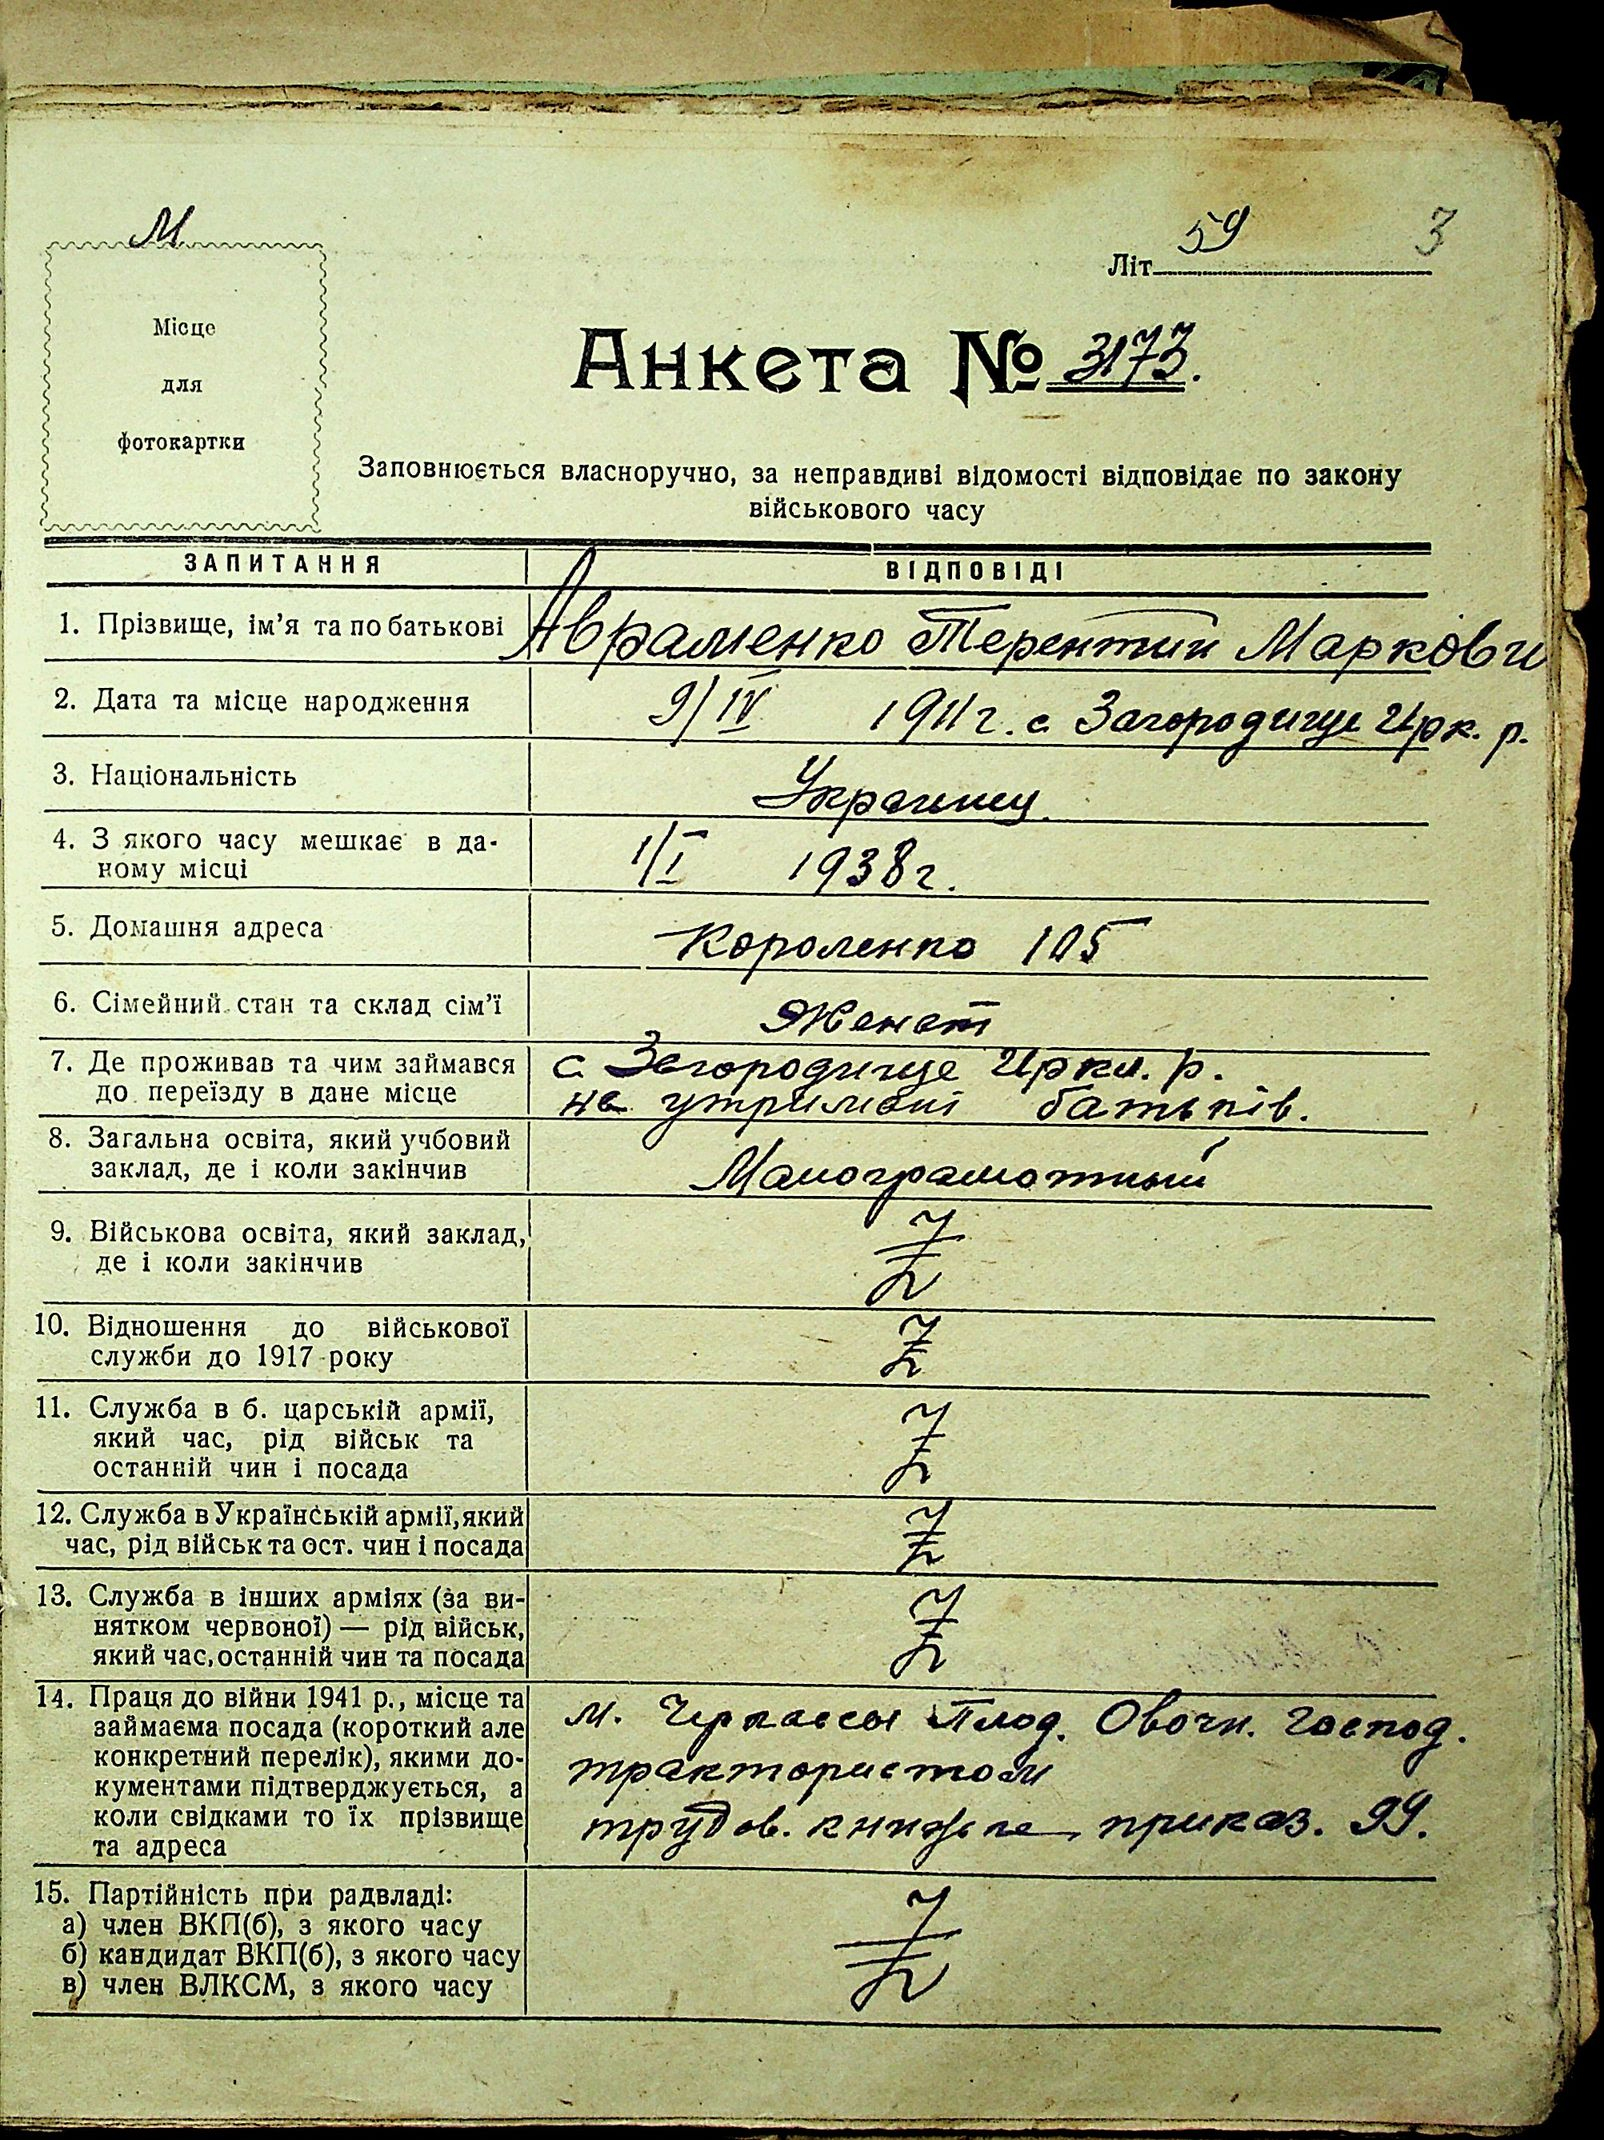 М
Літ 59 3
Місце
для
фотокартки
Анкета № 3173.
Заповнюється власноручно, за неправдиві відомості відповідає по закону
військового часу
ЗАПИТАННЯ ВІДПОВІДІ
1. Прізвище, ім'я та по батькові Авраменко Терентий Маркови
2. Дата та місце народження 9/IV 1911г. с Загородище Ирк. р.
3. Національність Украинец
4. З якого часу мешкає в да-
ному місці 1/I 1938г.
5. Домашня адреса Короленко 105
6. Сімейний стан та склад сім'ї Женат
7. Де проживав та чим займався с Загородище Иркл. р.
до переїзду в дане місце на утримані батьків.
8. Загальна освіта, який учбовий
заклад, де і коли закінчив Малограмотный
9. Військова освіта, який заклад,
де і коли закінчив
10. Відношення до військової
служби до 1917 року
11. Служба в б. царській армії,
який час, рід військ та
останній чин і посада
12. Служба в Українській армії, який
час, рід військ та ост. чин і посада
13. Служба в інших арміях (за ви-
нятком червоної) — рід військ,
який час, останній чин та посада
14. Праця до війни 1941 р., місце та м. Черкассы Плод. Овочн. Господ.
займаєма посада (короткий але
конкретний перелік), якими до- трактористом
кументами підтверджується, а
коли свідками то їх прізвище трудов. книжке приказ. 99.
та адреса
15. Партійність при радвладі:
а) член ВКП(б), з якого часу
б) кандидат ВКП(б), з якого часу
в) член ВЛКСМ, з якого часу